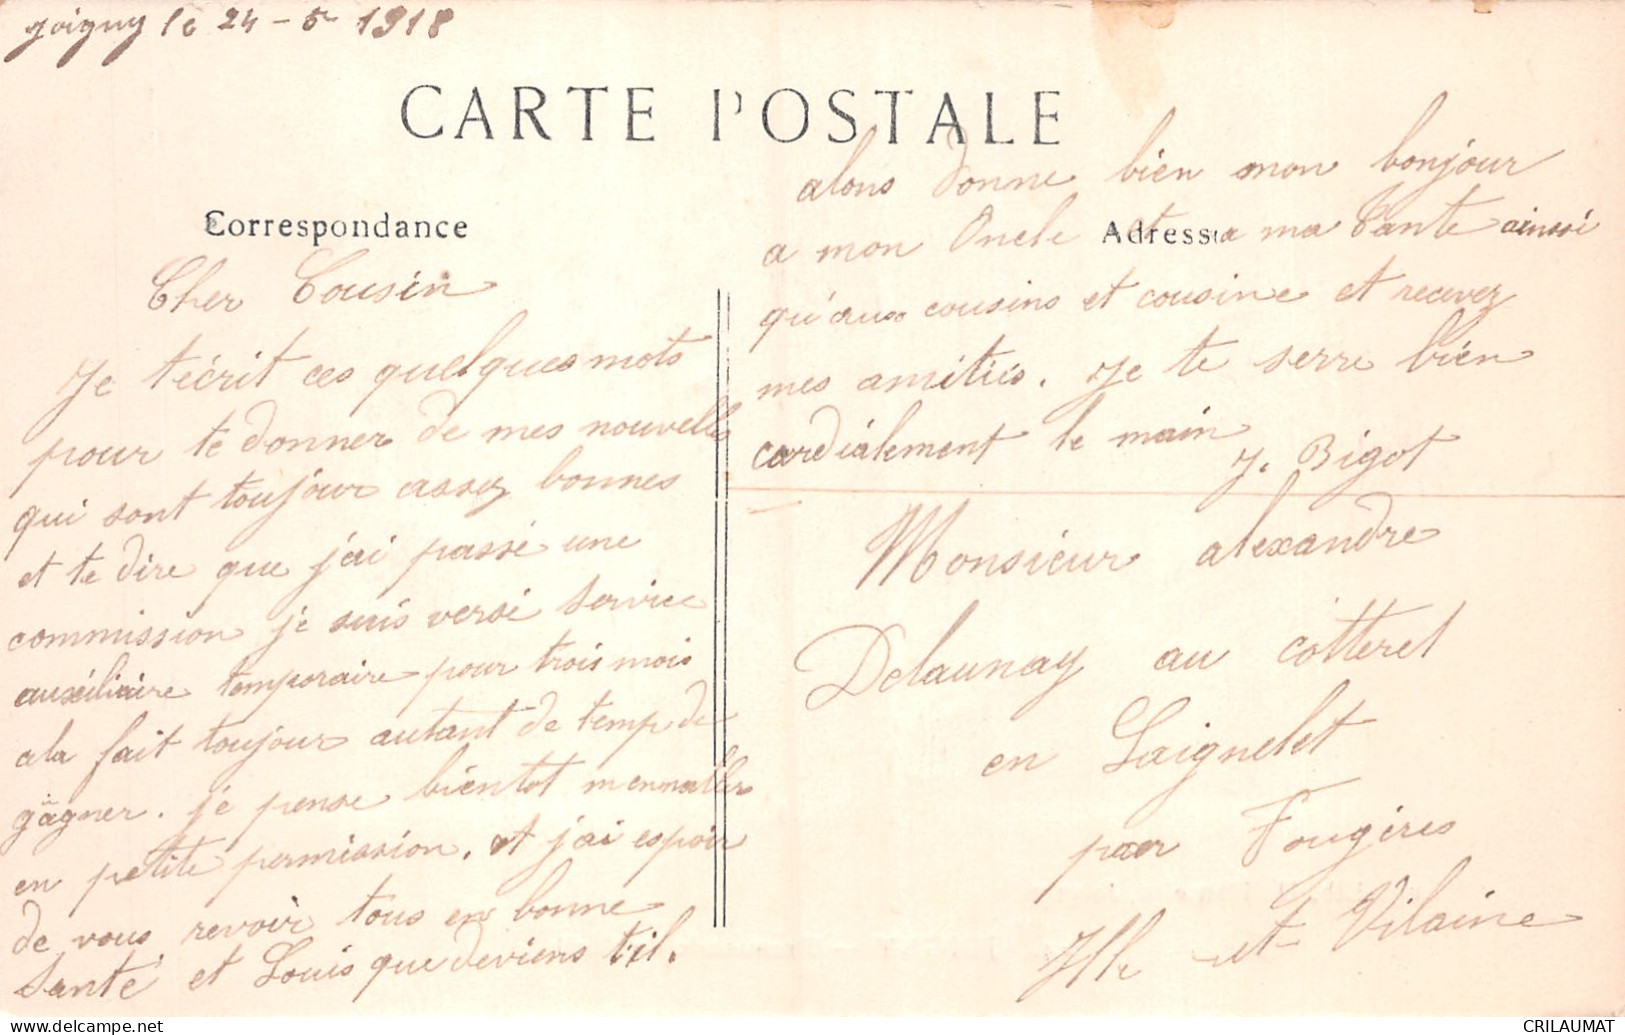 Joigny le 24-5-1918
CARTE POSTALE
Correspondance
Cher Cousin
Je t'écrit ces quelques mots
pour te donner de mes nouvelles
qui sont toujour assez bonnes
et te dire que j'ai passé une
commission je suis versé service
auxiliaire temporaire pour trois mois
ala fait toujour autant de temp de
gâgner. je pense bientot mennaller
en petite permission. et j'ai espoir
de vous revoir tous en bonne
Santé et Louis que deviens til.
alons donne bien mon bonjour
a mon Oncle et a ma tante ainssi
Adresse
qu'aux cousins et cousine et recevez
mes amitiés. Je te serre bien
cordialement le main
J. Bigot
Monsieur alexandre
Delaunay au cotteret
en Laignelet
par Fougères
Ille et Vilaine
CRILAUMAT